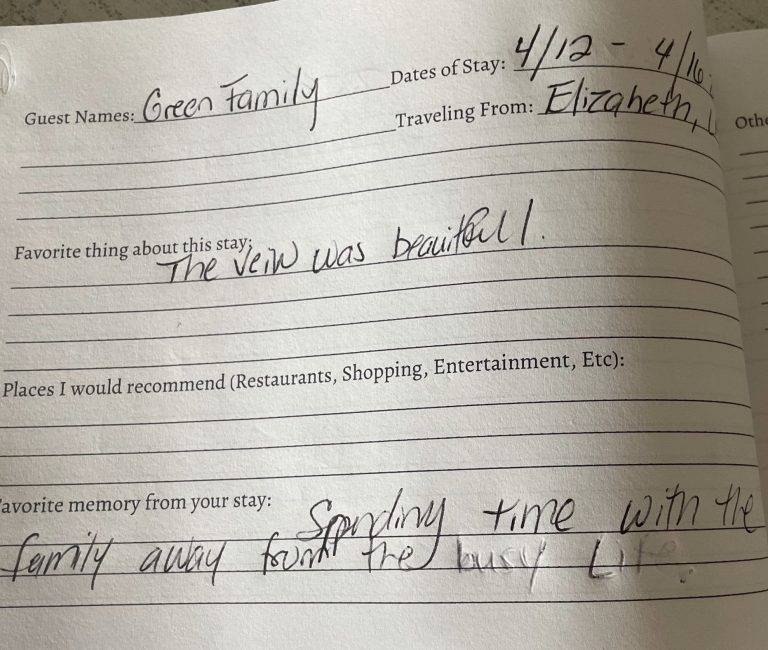 Guest Names: Green Family
Dates of Stay: 4/12 - 4/16
Traveling From: Elizabeth,
Othe
Favorite thing about this stay:
The veiw was beauitful!.
Places I would recommend (Restaurants, Shopping, Entertainment, Etc):
avorite memory from your stay: Spending time with the
family away from the busy Life.